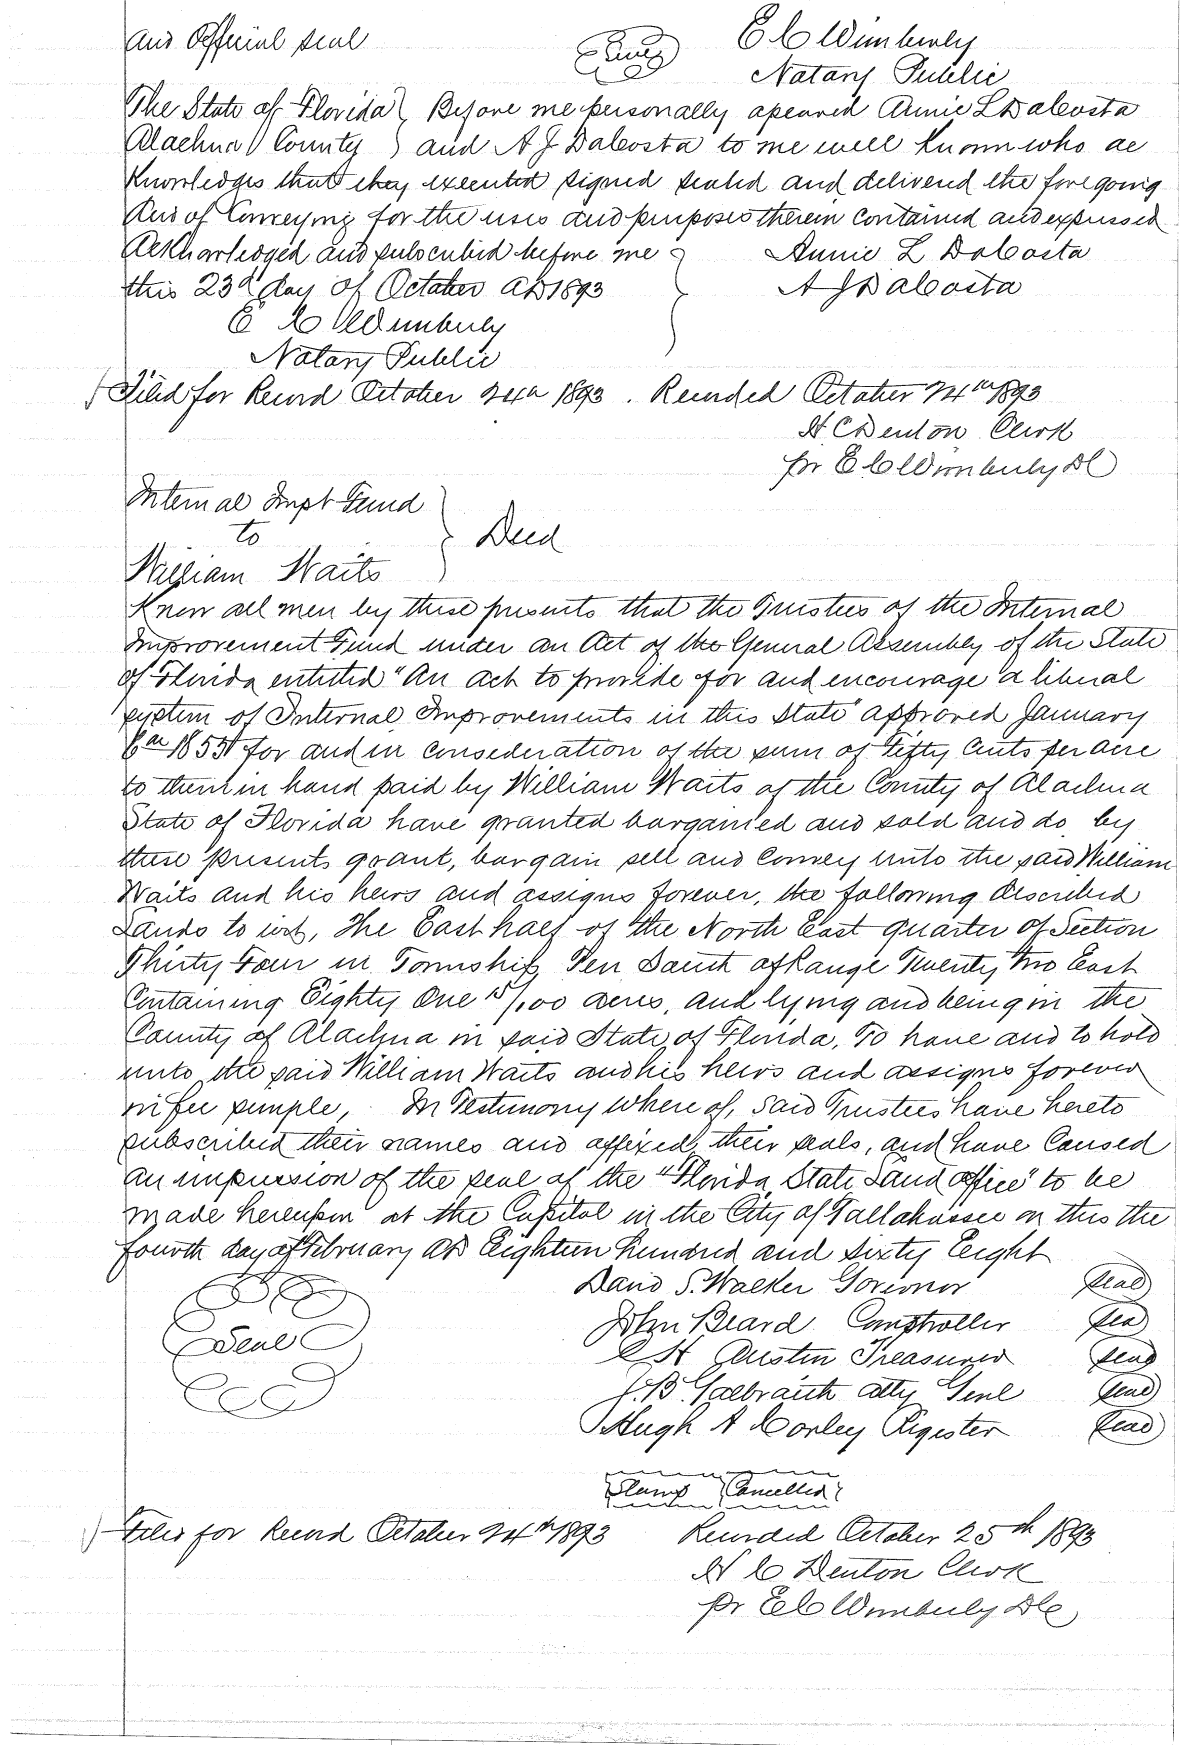 and Official seal
Seal
E C Wimberly
Notary Public
The State of Florida } Before me personally apeared Annie L DaCosta
Alachua County } and A J DaCosta to me well known who ac
knowledges that they executed signed sealed and delivered the foregoing
Deed of Conveying for the uses and purposes therein contained and expressed
Acknowledged and subscribed before me } Annie L DaCosta
this 23d day of October AD 1893 } A J DaCosta
E C Wimberly
Notary Public
Filed for Record October 24th 1893. Recorded October 24th 1893
H C Denton Clerk
pr E C Wimberly DC
Internal Impt Fund
to } Deed
William Waits
Know all men by these presents that the Trustees of the Internal
Improvement Fund under an Act of the General Assembly of the State
of Florida entitled "An act to provide for and encourage a liberal
system of Internal Improvements in this State" approved January
6th 1855 for and in consideration of the sum of Fifty Cents per acre
to them in hand paid by William Waits of the County of Alachua
State of Florida have granted bargained and sold and do by
these presents grant, bargain sell and Convey unto the said William
Waits and his heirs and assigns forever, the following described
Lands to wit, The East half of the North East quarter of Section
Thirty Four in Township Ten South of Range Twenty Two East
Containing Eighty One 15/100 acres, and lying and being in the
County of Alachua in said State of Florida, To have and to hold
unto the said William Waits and his heirs and assigns forever
in fee simple, In Testimony Where of, said Trustees have hereto
subscribed their names and affixed their seals, and have Caused
an impression of the seal of the "Florida State Land office" to be
made hereupon at the Capitol in the City of Tallahassee on this the
fourth day of February AD Eighteen hundred and sixty Eight
David S. Walker Governor Seal
John Beard Comptroller Seal
Seal
C H Austin Treasurer Seal
J. B. Galbraith atty Genl Seal
Hugh A Corley Register Seal
Stamp Cancelled
Filed for Record October 24th 1893 Recorded October 25th 1893
H C Denton Clerk
pr E C Wimberly DC